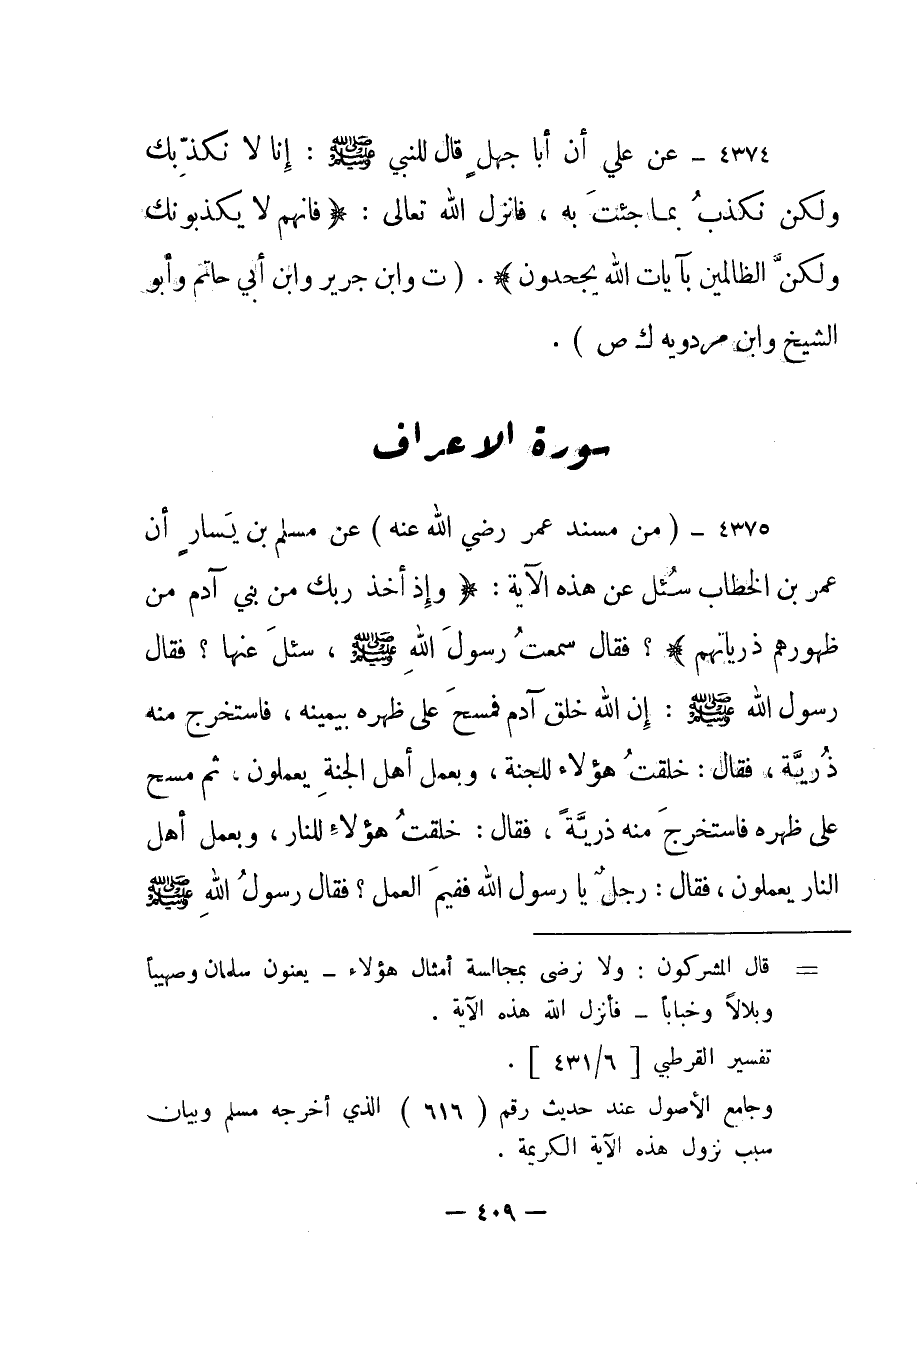 ٤٣٧٤ ـ عن علي أن أبا جهلٍ قال للنبي ﷺ : إنا لا نكذِّبك
ولكن نكذبُ بما جئتَ به ، فانزل الله تعالى : ﴿ فانهم لا يكذبونك
ولكنَّ الظالمين بآيات الله يجحدون ﴾ . ( ت وابن جرير وابن أبي حاتم وأبو
الشيخ وابن مردويه ك ص ) .
سورة الاعراف
٤٣٧٥ ـ ( من مسند عمر رضي الله عنه ) عن مسلم بن يَسارٍ أن
عمر بن الخطاب سُئل عن هذه الآية : ﴿ وإذ أخذ ربك من بني آدم من
ظهورهم ذرياتهم ﴾ ؟ فقال سمعتُ رسولَ اللهِ ﷺ ، سئلَ عنها ؟ فقال
رسول الله ﷺ : إن الله خلق آدم فمسحَ على ظهره بيمينه ، فاستخرج منه
ذُريَّة ، فقال : خلقتُ هؤلاء للجنة ، وبعمل أهل الجنةِ يعملون ، ثم مسح
على ظهره فاستخرجَ منه ذريَّةً ، فقال : خلقتُ هؤلاءِ للنار ، وبعمل أهل
النار يعملون ، فقال : رجلٌ يا رسول الله ففيمَ العمل ؟ فقال رسولُ اللهِ ﷺ
= قال المشركون : ولا نرضى بمجالسة أمثال هؤلاء ـ يعنون سلمان وصهيباً
وبلالاً وخباباً ـ فأنزل الله هذه الآية .
تفسير القرطبي [ ٤٣١/٦ ] .
وجامع الأصول عند حديث رقم ( ٦١٦ ) الذي أخرجه مسلم وبيان
سبب نزول هذه الآية الكريمة .
— ٤٠٩ —